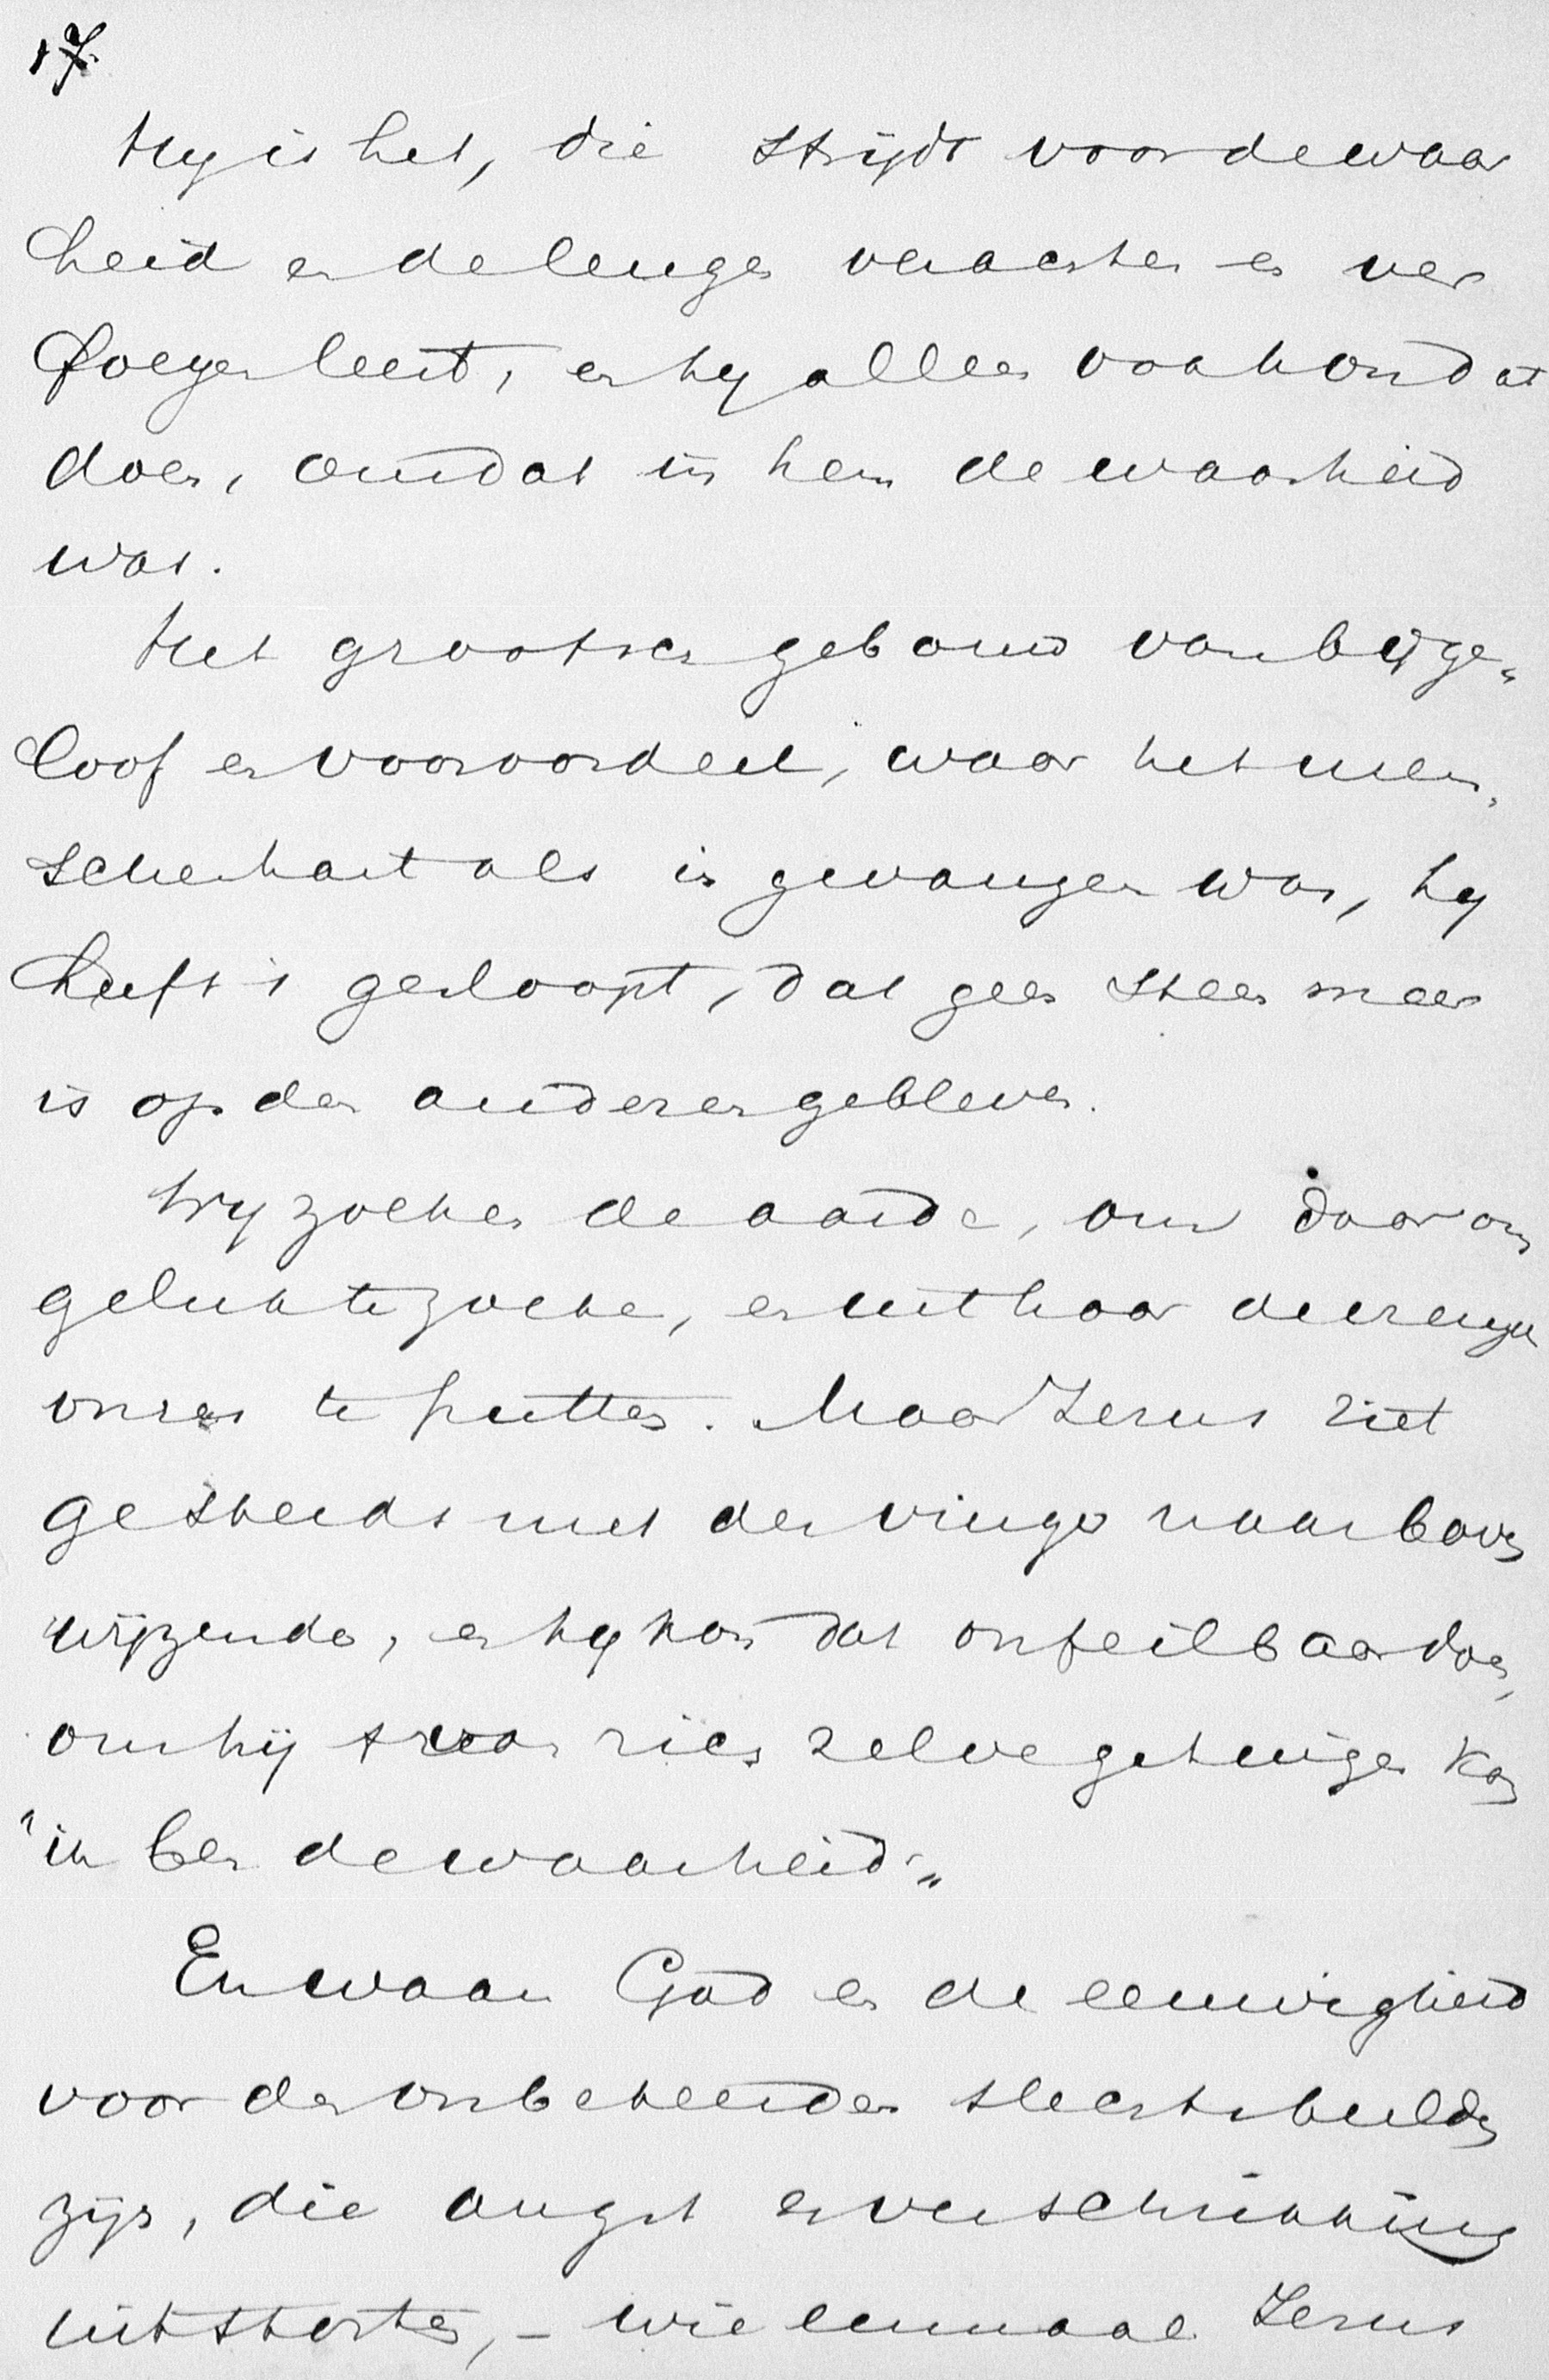 17.
Hy is het, die strijdt voor de waar
heid en de leugen verachten en ver
foeyen leert, en hy alleen vookon dat
doen, omdat in hem de waarheid
was.
Het grootsch gebouw van byge„
loof en vooroordeel, waar het men„
schenhart als in gevangen was, hy
heeft 't gesloopt, dat geen steen meer
is op den anderen gebleven.
Wy zoeken de aarde, om daar ons
geluk te zoeken, en uit haar
te putten. Maar Jezus riet
gesteeds met den vinger naar boven
wijzende, en hy kon dat onfeilbaar doen,
om hij van zich zelve getuigen kon
"ik ben de waarheid„
En waar God en de eeuwigheid
voor den onbekeerden slechts beelden
zijn, die angst en verschrikking
uitstorten, – wie eenmaal Jezus